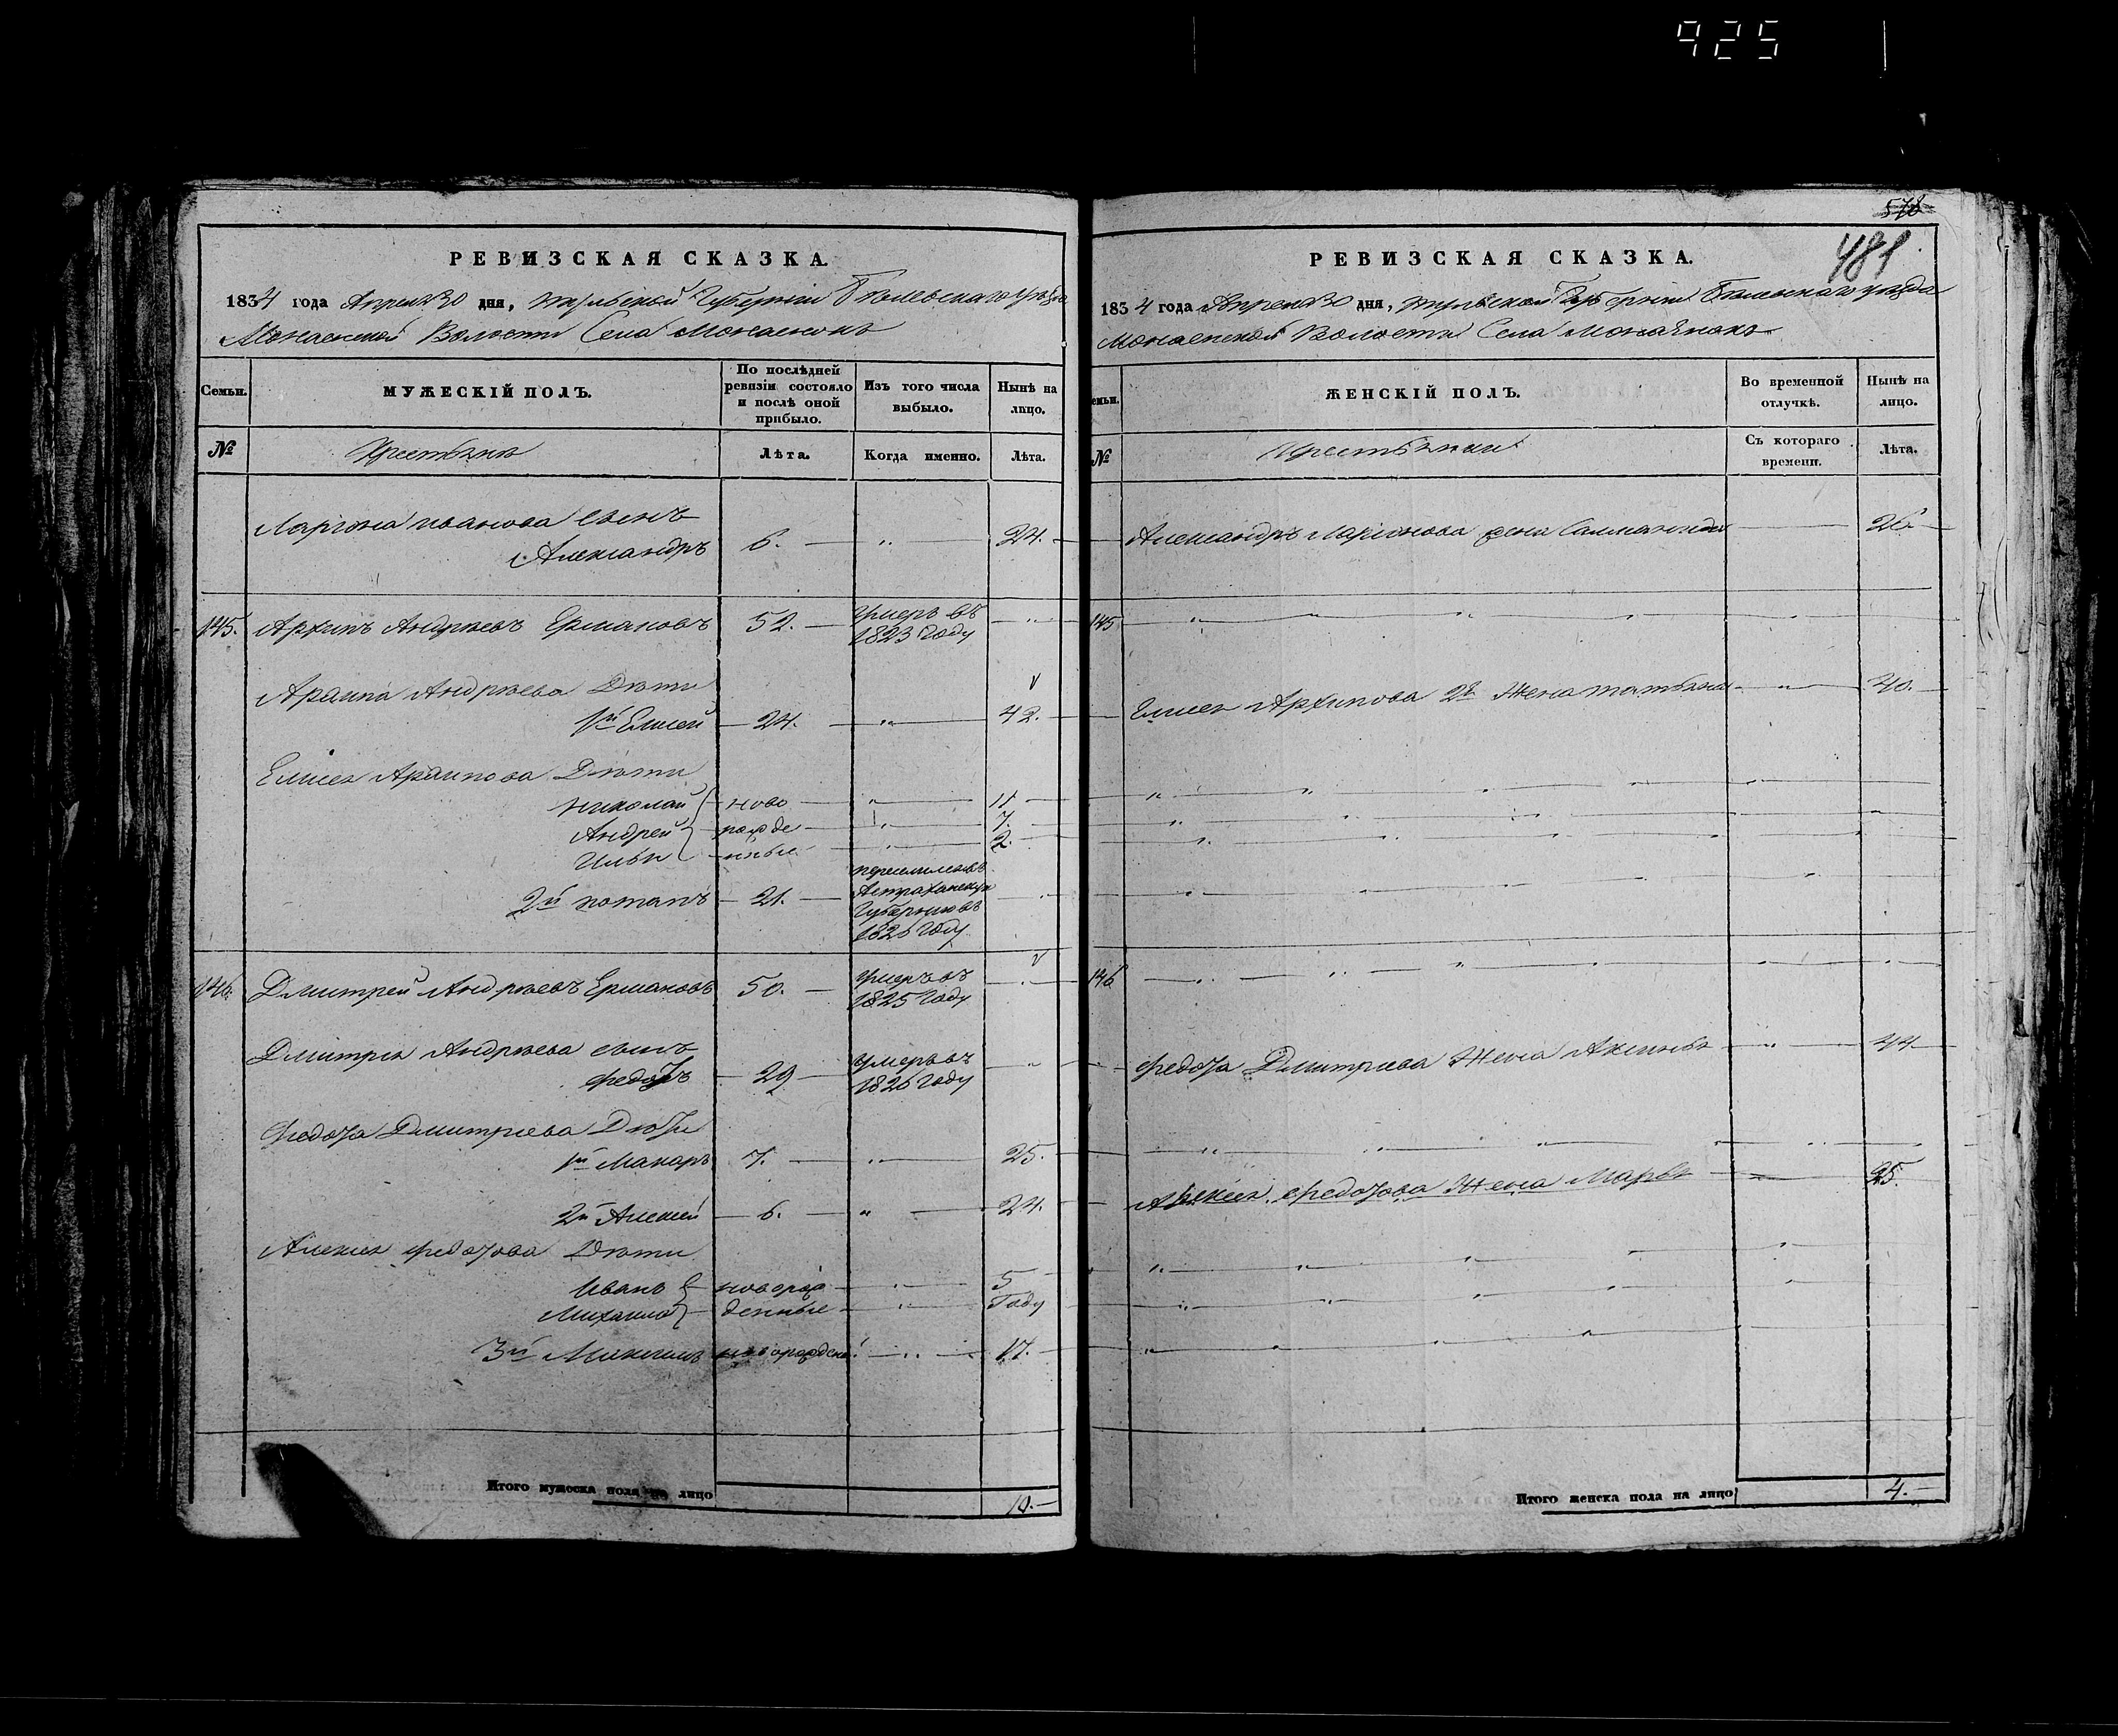 925
РЕВИЗСКАЯ СКАЗКА.
1834 года Апреля 30 дня, Тульской Губернiи Белевскаго уезда
Волости Села
Семьи.
МУЖЕСКIЙ ПОЛЪ.
По послѣдней ревизiи состояло и послѣ оной прибыло.
Изъ того числа выбыло.
Нынѣ на лицо.
№
Крестьяне
Лѣта.
Когда именно.
Лѣта.
Лариона Иванова сынъ
Александръ 6. — „ — 24.
145. Архипъ Андреевъ Ермаковъ 52. — умеръ въ 1823 году — „
Архипа Андреева Дети
1й Елисей — 24. — „ — 42.
Елисея Архипова Дети
Николай — ново — „ — 11
Андрей — рожде — „ — 7.
Илья — нные — „ — 2.
2й Потапъ — 21. — Астраханскую Губернию въ 1826 году
146. Дмитрей Андреевъ Ермаковъ 50. — умеръ въ 1825 году
Дмитрея Андреева сынъ
Федотъ — 29 — умеръ въ 1826 году — „
Федота Дмитриева Дети
1й Макаръ 7. — „ — 25.
2й Алексей — 6. — „ — 24.
Алексея Федотова Дети
Иванъ — новорож — „ — 5
Михаила — денные — „ — Году
3й новорожден — „ — 17.
Итого мужеска пола на лицо 10.—
578
481
РЕВИЗСКАЯ СКАЗКА.
1834 года Апреля 30 дня, Тульской Губернiи Белевскаго уезда
Волости Села
Семьи.
ЖЕНСКIЙ ПОЛЪ.
Во временной отлучкѣ.
Нынѣ на лицо.
№
Крестьянки
Съ котораго времени.
Лѣта.
Александръ Ларионова жена — 26.
145 „ „ „ „ „
Елисея Архипова 2я Жена Татьяна — „ — 40.
146 — „ — „ — „ — „ — „
Федота Дмитриева Жена Аксинья — „ — 44
Алексея Федотова Жена Марья — 25.
Итого женска пола на лицо 4.—